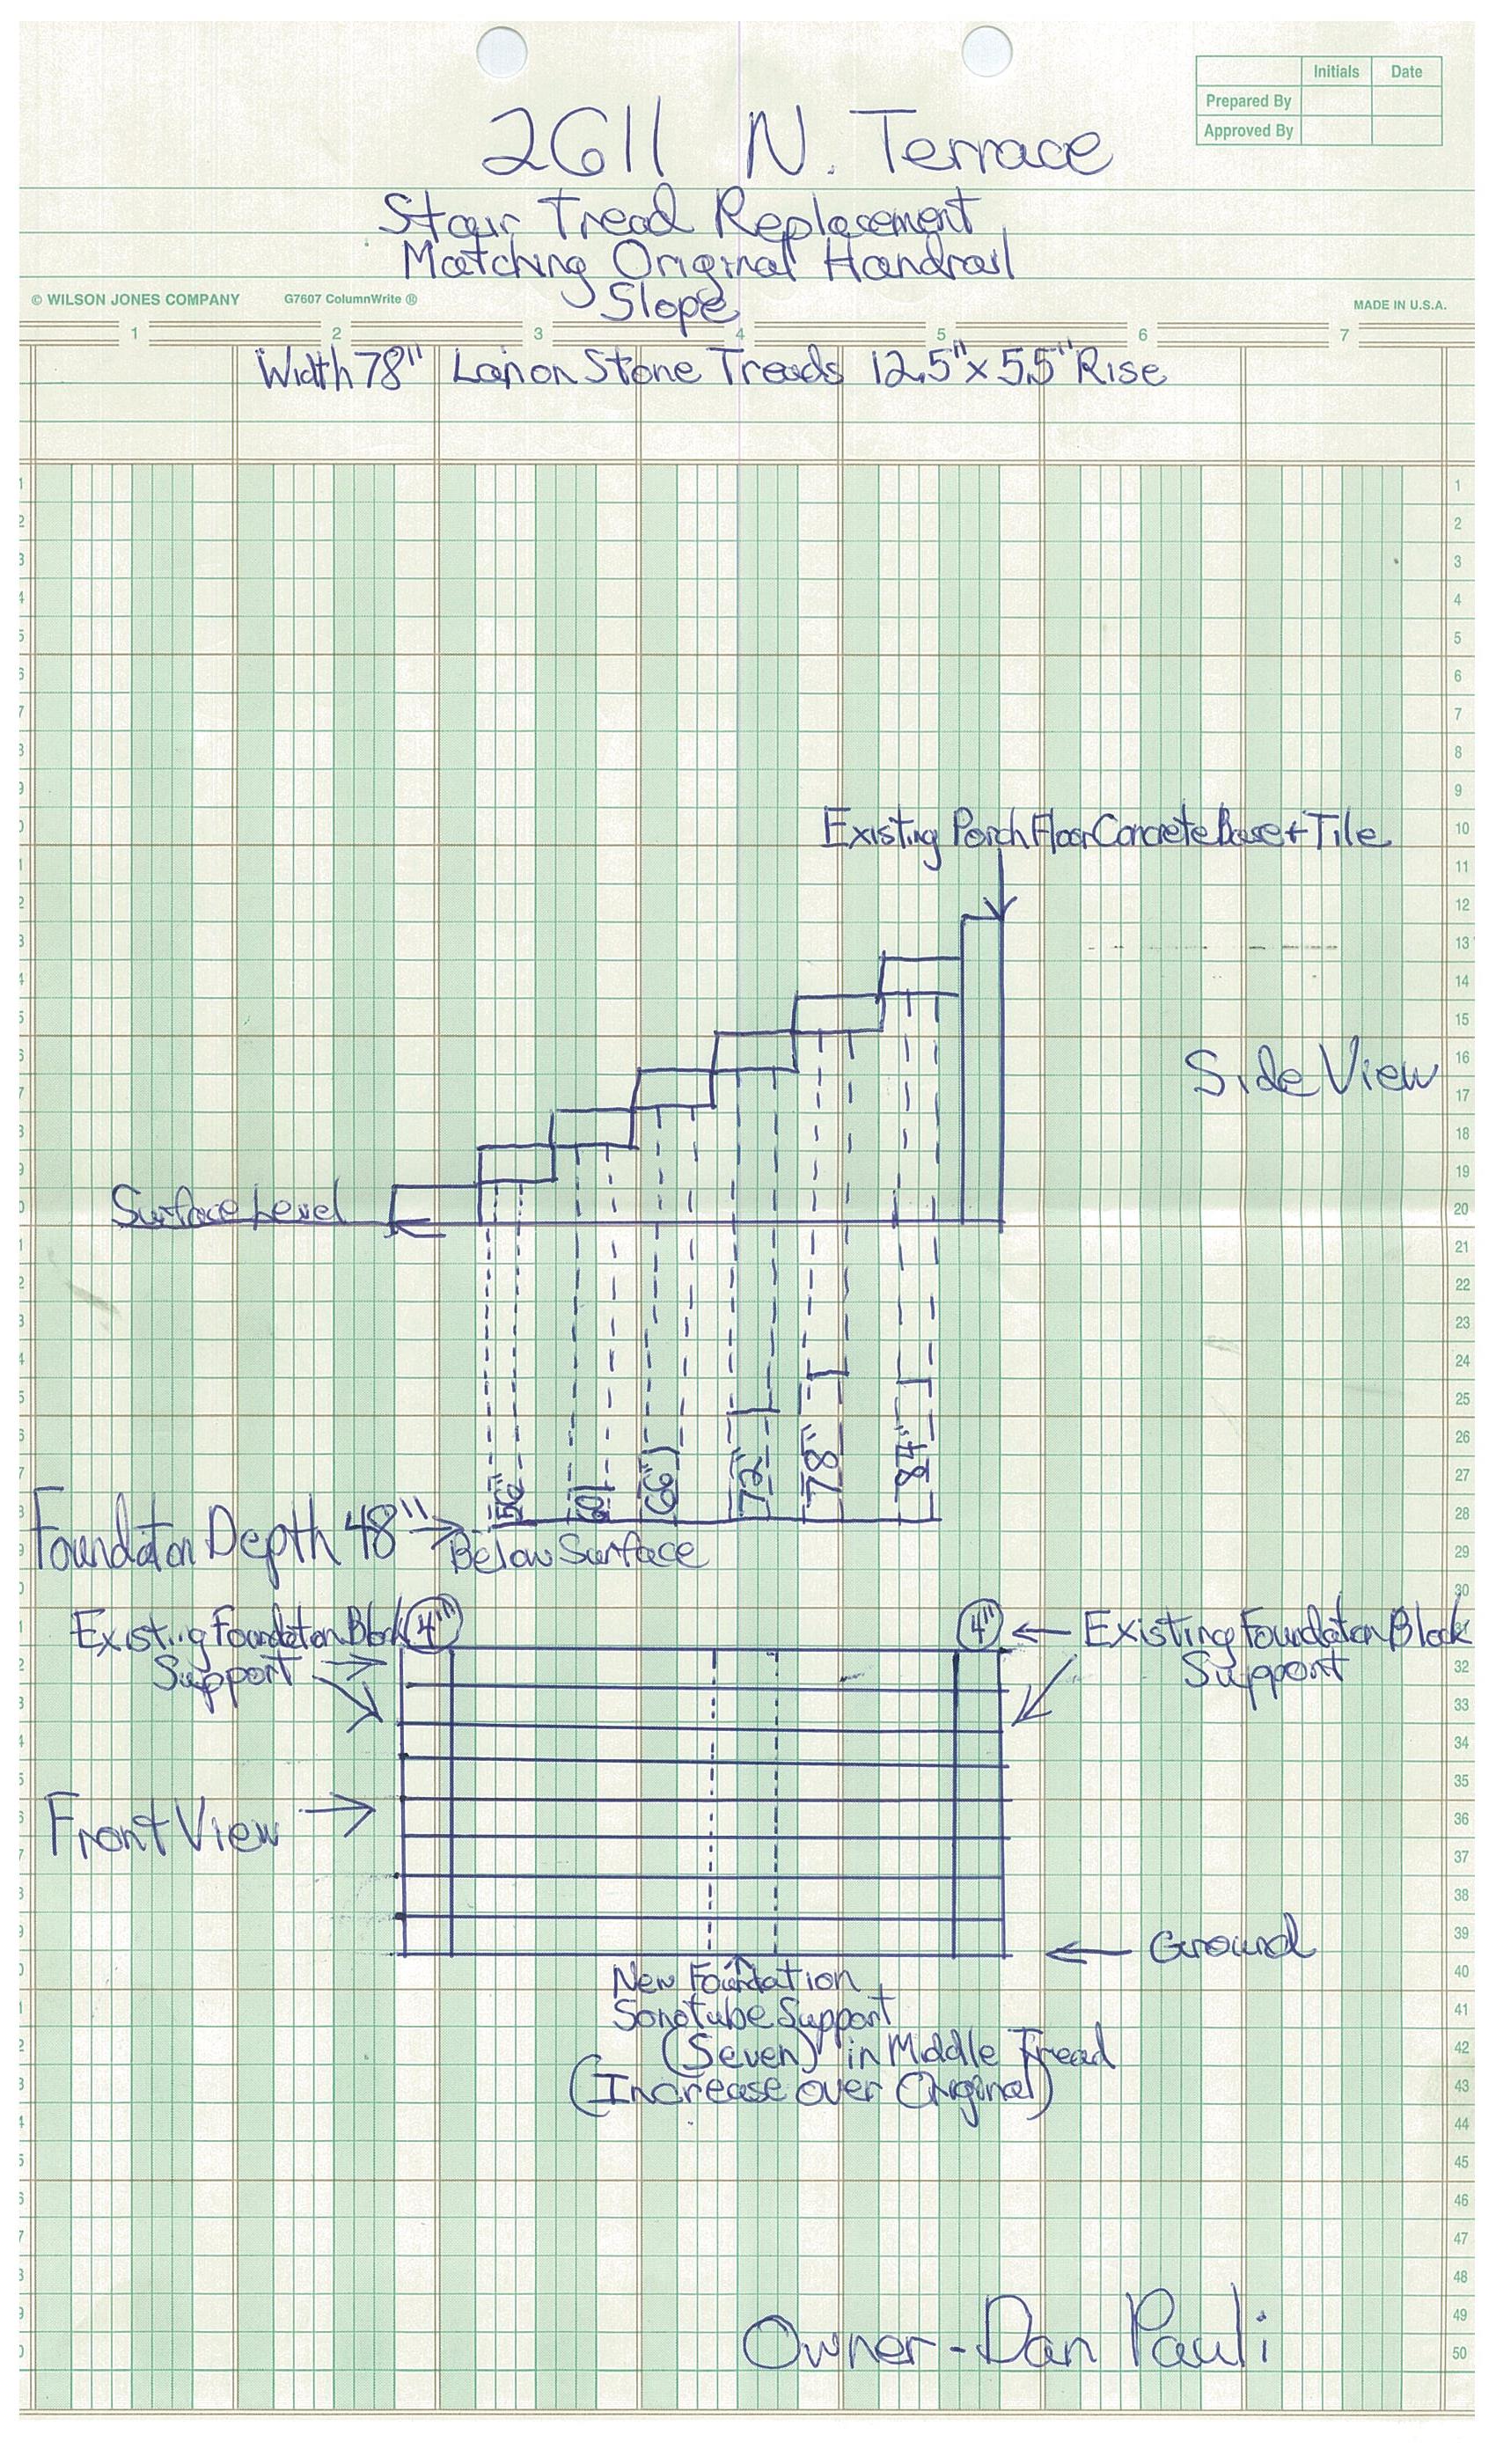 Initials Date
Prepared By
Approved By
2611 N. Terrace
Stair Tread Replacement
Matching Original Handrail
Slope
© WILSON JONES COMPANY G7607 ColumnWrite ® MADE IN U.S.A.
1 2 3 4 5 6 7
Width 78" Lanon Stone Treads 12.5" x 5.5" Rise
1
2
3
4
5
6
7
8
9
Existing Porch Floor Concrete Base + Tile
10
11
12
13
14
15
16
Side View
17
18
19
Surface Level
20
21
22
23
24
25
26
56" 60" 66" 72" 78" 84"
27
28
Foundation Depth 48"
Below Surface
29
30
Existing Foundation Block 4" 4" Existing Foundation Block
31
Support Support
32
33
34
35
Front View
36
37
38
39
Ground
40
New Foundation
41
Sonotube Support
42
(Seven) in Middle Tread
43
(Increase over Original)
44
45
46
47
48
49
Owner - Dan Pauli
50